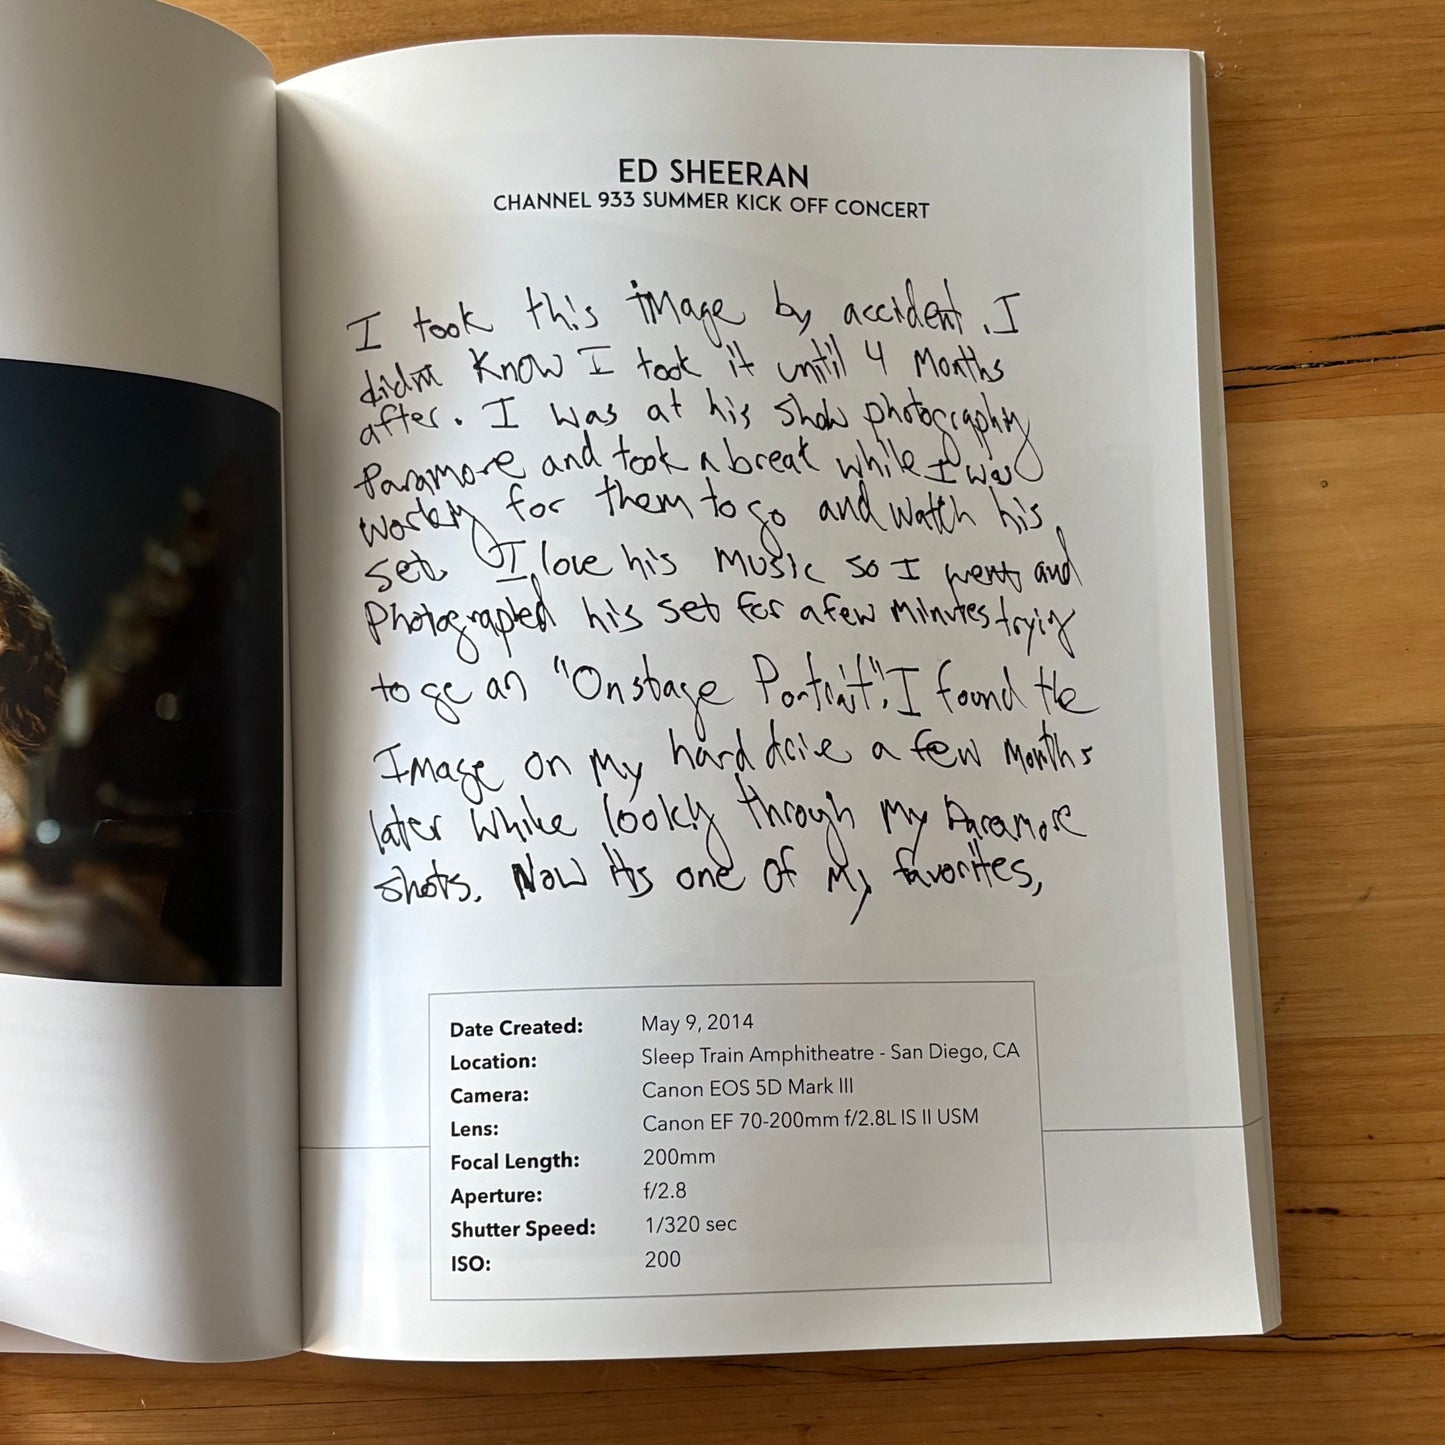 ED SHEERAN
CHANNEL 933 SUMMER KICK OFF CONCERT
I took this image by accident. I
didnt know I took it until 4 months
after. I was at his show photography
Paramore and took a break while I was
workng for them to go and watch his
set. I love his music so I went and
Photographed his set for a few minutes trying
to ge an "Onstage Portrait". I found the
Image on my hard drive a few months
later while looking through my Paramore
shots. Now its one of my favorites,
Date Created: May 9, 2014
Location: Sleep Train Amphitheatre - San Diego, CA
Camera: Canon EOS 5D Mark III
Lens: Canon EF 70-200mm f/2.8L IS II USM
Focal Length: 200mm
Aperture: f/2.8
Shutter Speed: 1/320 sec
ISO: 200